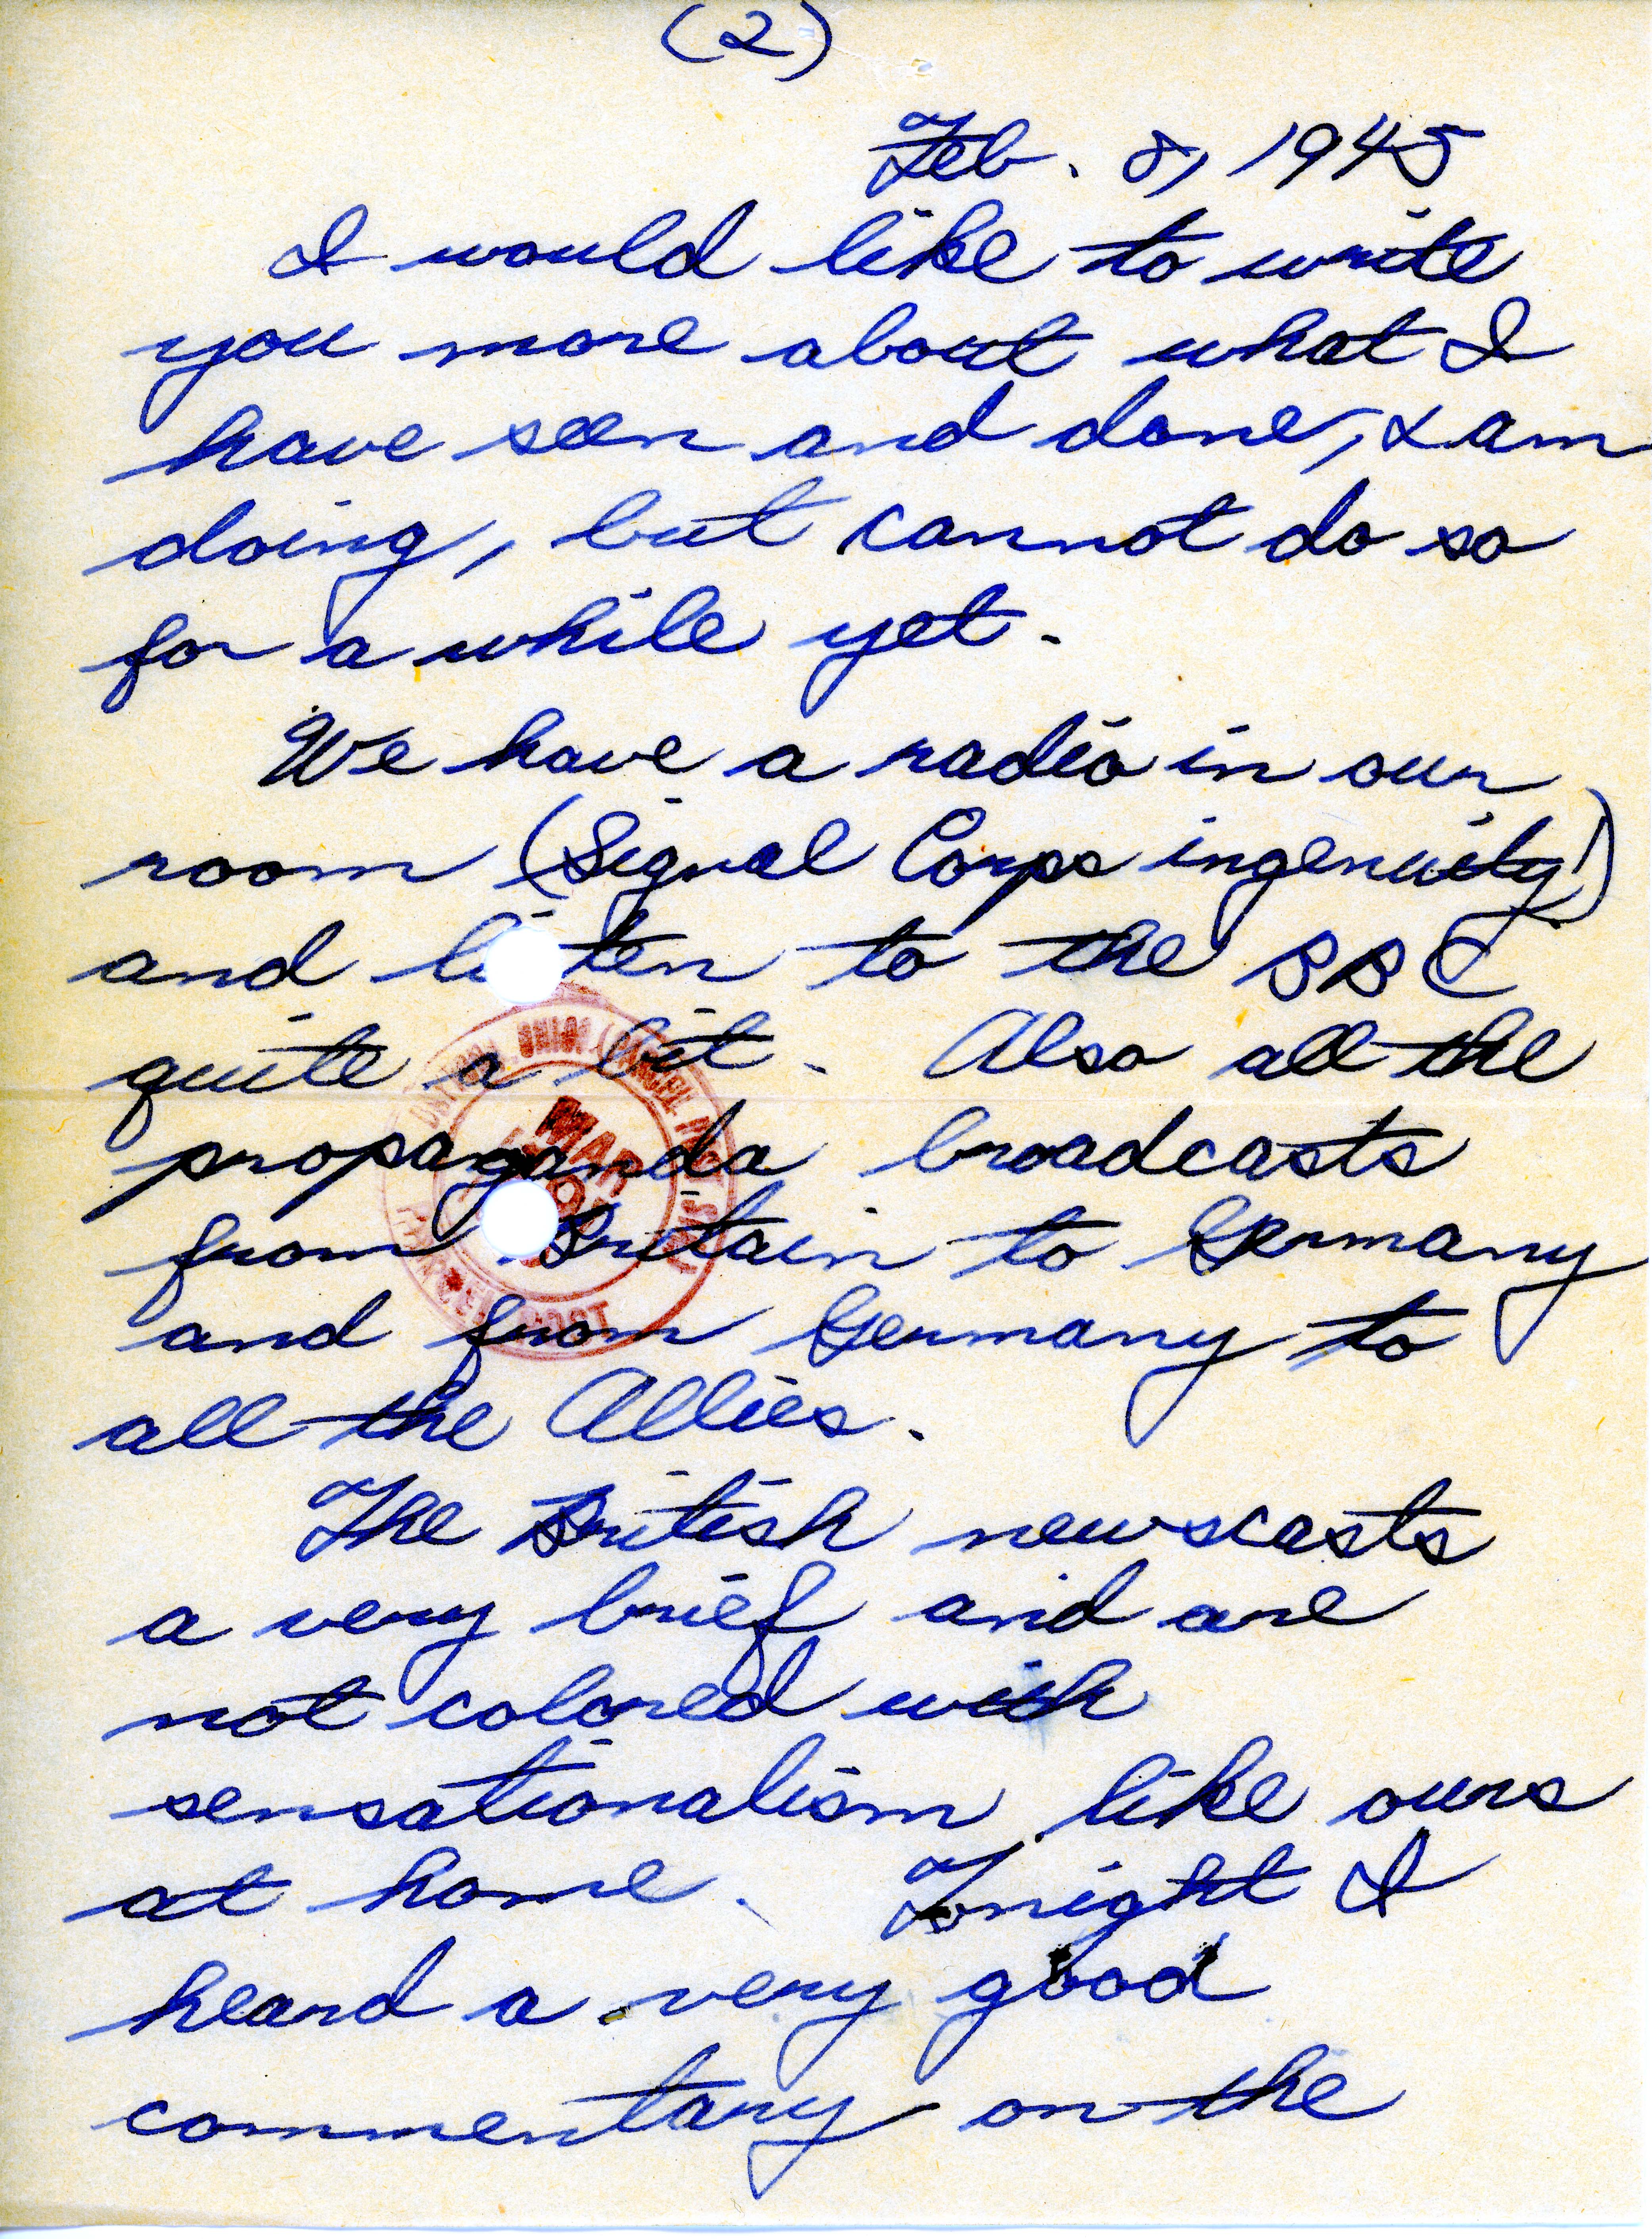 (2)
Feb. 8, 1945
I would like to write
you more about what I
have seen and done, & am
doing, but cannot do so
for a while yet.
We have a radio in our
room (Signal Corps ingenuity!)
and listen to the BBC
quite a bit. Also all the
propaganda broadcasts
from Britain to Germany
and from Germany to
all the Allies.
The British newscasts
a very brief and are
not colored with
sensationalism like ours
at home. Tonight I
heard a very good
commentary on the
MAR